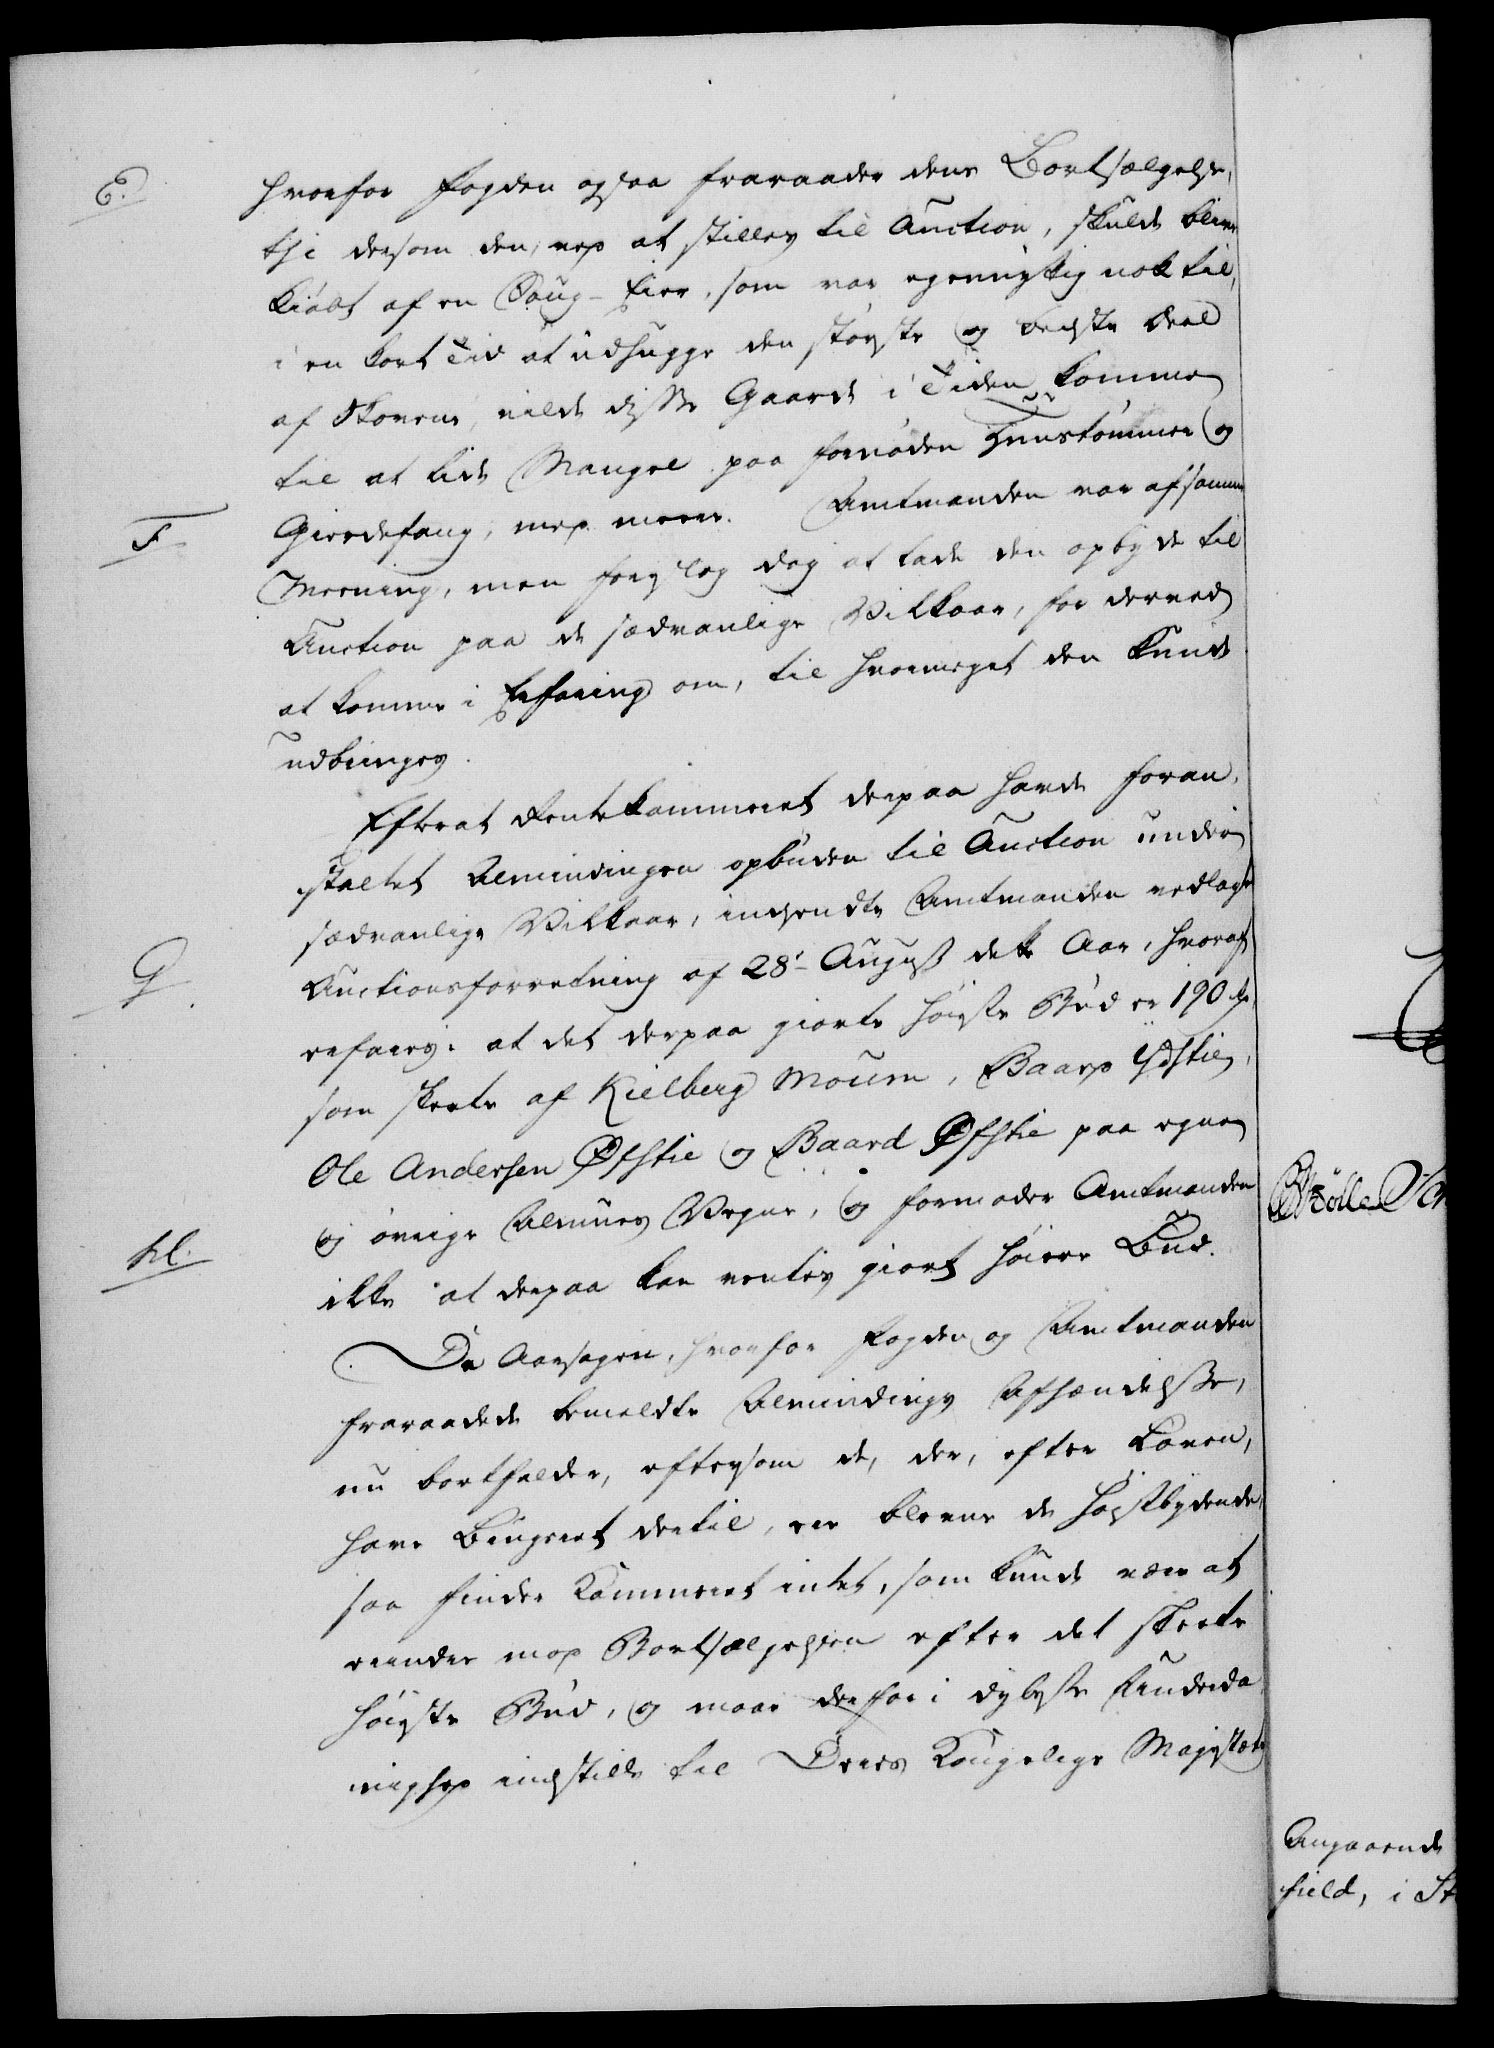 E.
hvorfor Fogden ogsaa fraraader dens Bortsælgelse,
thi dersom den, ved at stilles til Auction, skulde blive
kiøbt af en Saug-Eier, som var egennyttig nok til,
i en kort Tid at udhugge den største og bedste Deel
af Skoven, vilde disse Gaarde i Tiden komme
til at lide Mangel paa fornøden Huustømmer og
F
Gierdefang, med meere. Amtmanden var af samme
Meening, men foreslog dog at lade den opbyde til
Auction paa de sædvanlige Vilkaar, for derved
at komme i Erfaring om, til hvormeget den kunde
udbringes.
Efterat Rentekammeret derpaa havde foran,
staltet Almindingen opbuden til Auction under
sædvanlige Vilkaar, indsendte Amtmanden vedlagte
G.
Auctionsforretning af 28de August dette Aar, hvoraf
erfares: at det derpaa giorte høieste Bud er 190 rd,
som skeete af Kielberg Moum, Baard Ystie,
Ole Andersen Øfstie og Baard Øfstie paa egne
og øvrige Almues Vegne, og formoder Amtmanden
H.
ikke at derpaa kan ventes giort høiere Bud.
Da Aarsagen, hvorfor Fogden og Amtmanden
fraraadede bemeldte Almindings Afhændelse,
nu bortfalder, eftersom de, der, efter Loven,
have Brugsret dertil, ere blevne de høistbydende,
saa finder Kammeret intet, som kunde være at
erindre mod Bortsælgelsen efter det skeete
høieste Bud, og maae derfor i dybeste Underda,
nighed indstille til Deres Kongelige Majestæts
Angaaende
field, i St